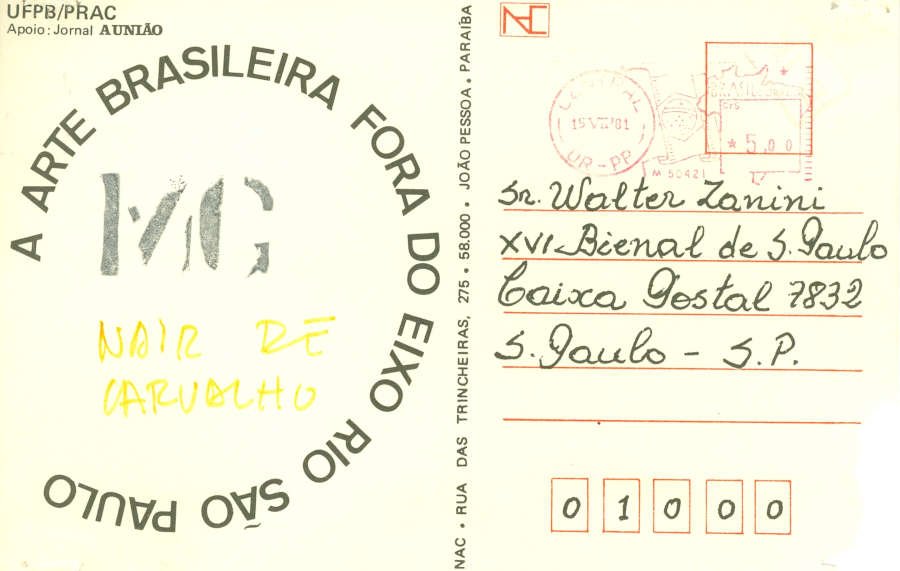 UFPB/PRAC
Apoio: Jornal A UNIÃO
A ARTE BRASILEIRA FORA DO EIXO RIO SÃO PAULO
MG
NAIR DE
CARVALHO
NAC • RUA DAS TRINCHEIRAS, 275 • 58.000 • JOÃO PESSOA • PARAÍBA
NAC
15 VII '81
UR-PP
BRASIL
CR$
* 5,00
M 50421
Sr. Walter Zanini
XVI-Bienal de S. Paulo
Caixa Postal 7832
S. Paulo - S.P.
0 1 0 0 0